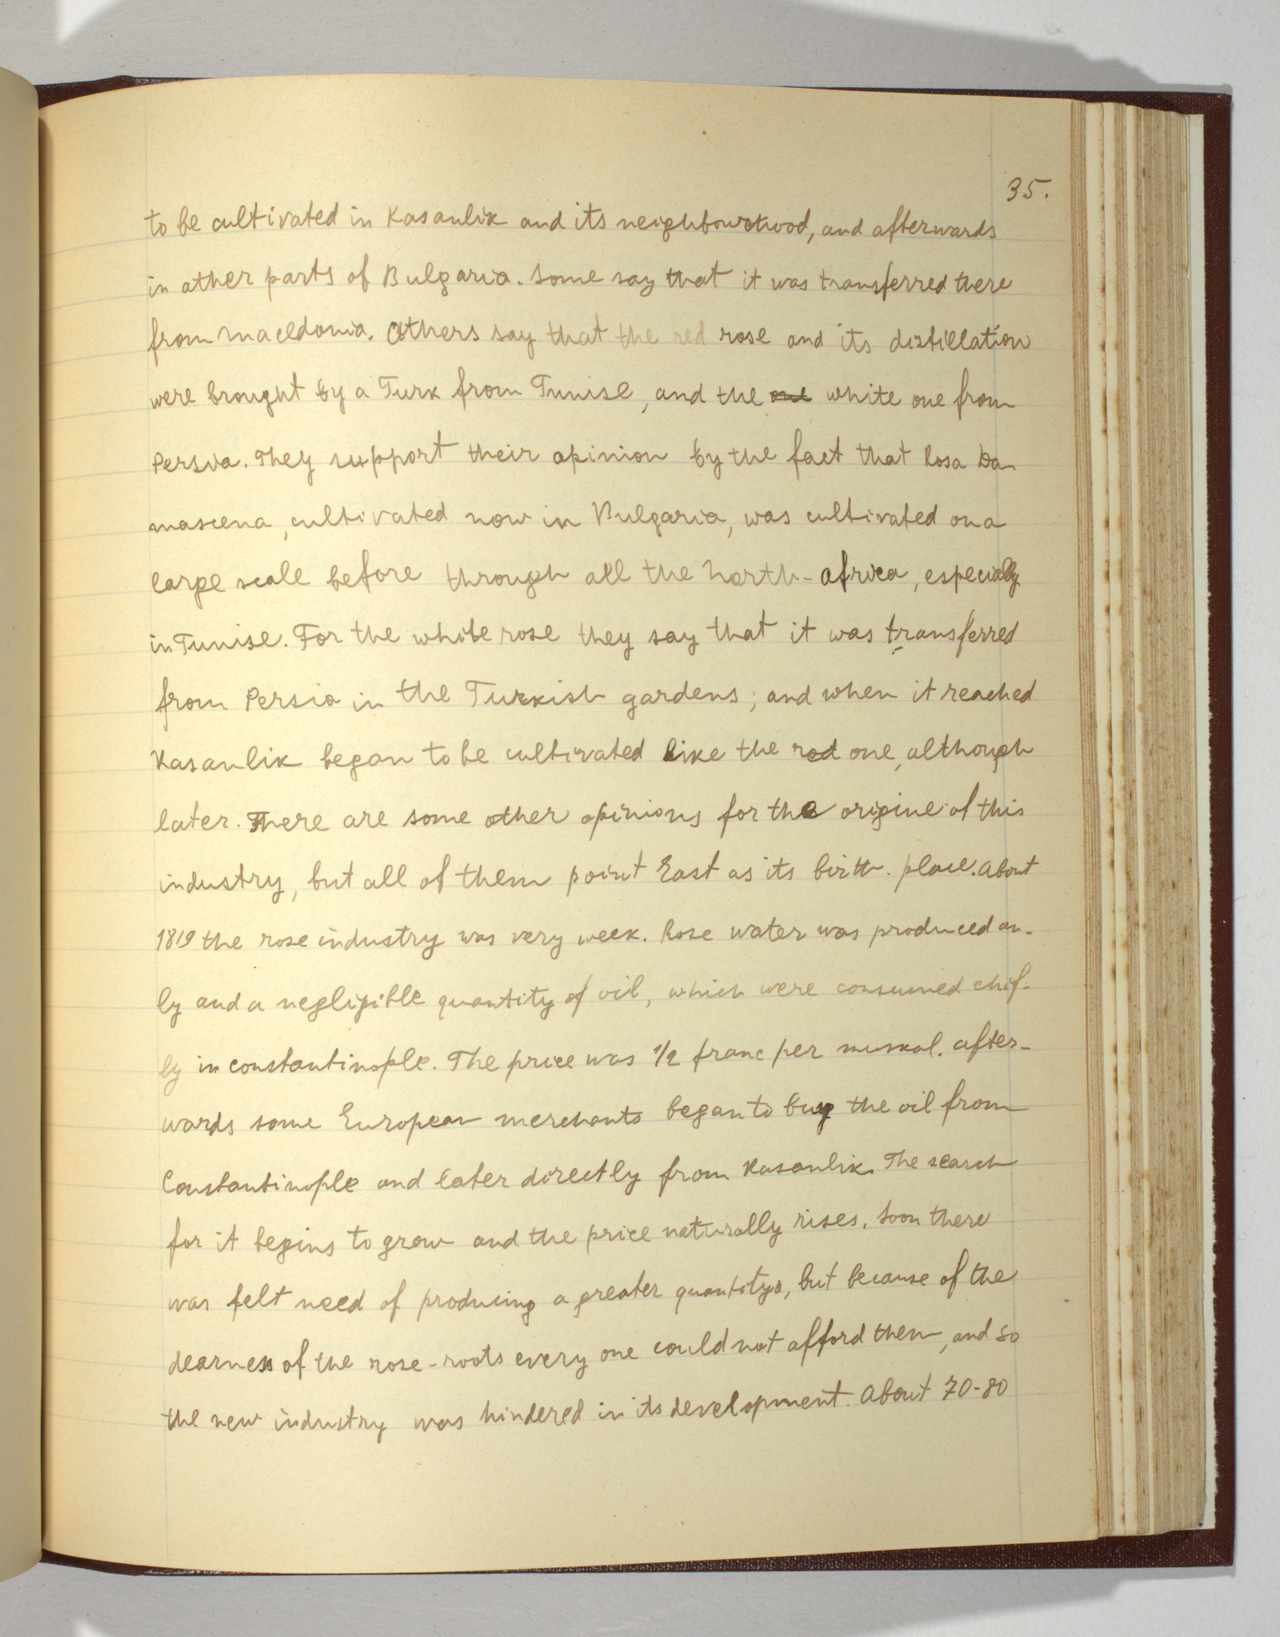 35.
to be cultivated in Kasanlik and its neighbourhood, and afterwards
in other parts of Bulgaria. Some say that it was transferred there
from Macedonia. Others say that the red rose and its distillation
were brought by a Turk from Tunise, and the one white one from
Persia. They support their opinion by the fact that Rosa Da
mascena, cultivated now in Bulgaria, was cultivated on a
large scale before through all the North-Africa, especially
in Tunise. For the white rose they say that it was transferred
from Persia in the Turkish gardens; and when it reached
Kasanlik began to be cultivated like the red one, although
later. There are some other opinions for the origine of this
industry, but all of them point East as its birth-place. About
1819 the rose industry was very week. Rose water was produced on-
ly and a negligible quantity of oil, which were consumed chif-
ly in Constantinople. The price was 1/2 franc per muskal. After-
wards some European merchants began to buy the oil from
Constantinople and later directly from Kasanlik. The search
for it begins to grow and the price naturally rises. Soon there
was felt need of producing a greater quantity, but because of the
dearness of the rose-roots every one could not afford them, and so
the new industry was hindered in its development. About 70-80